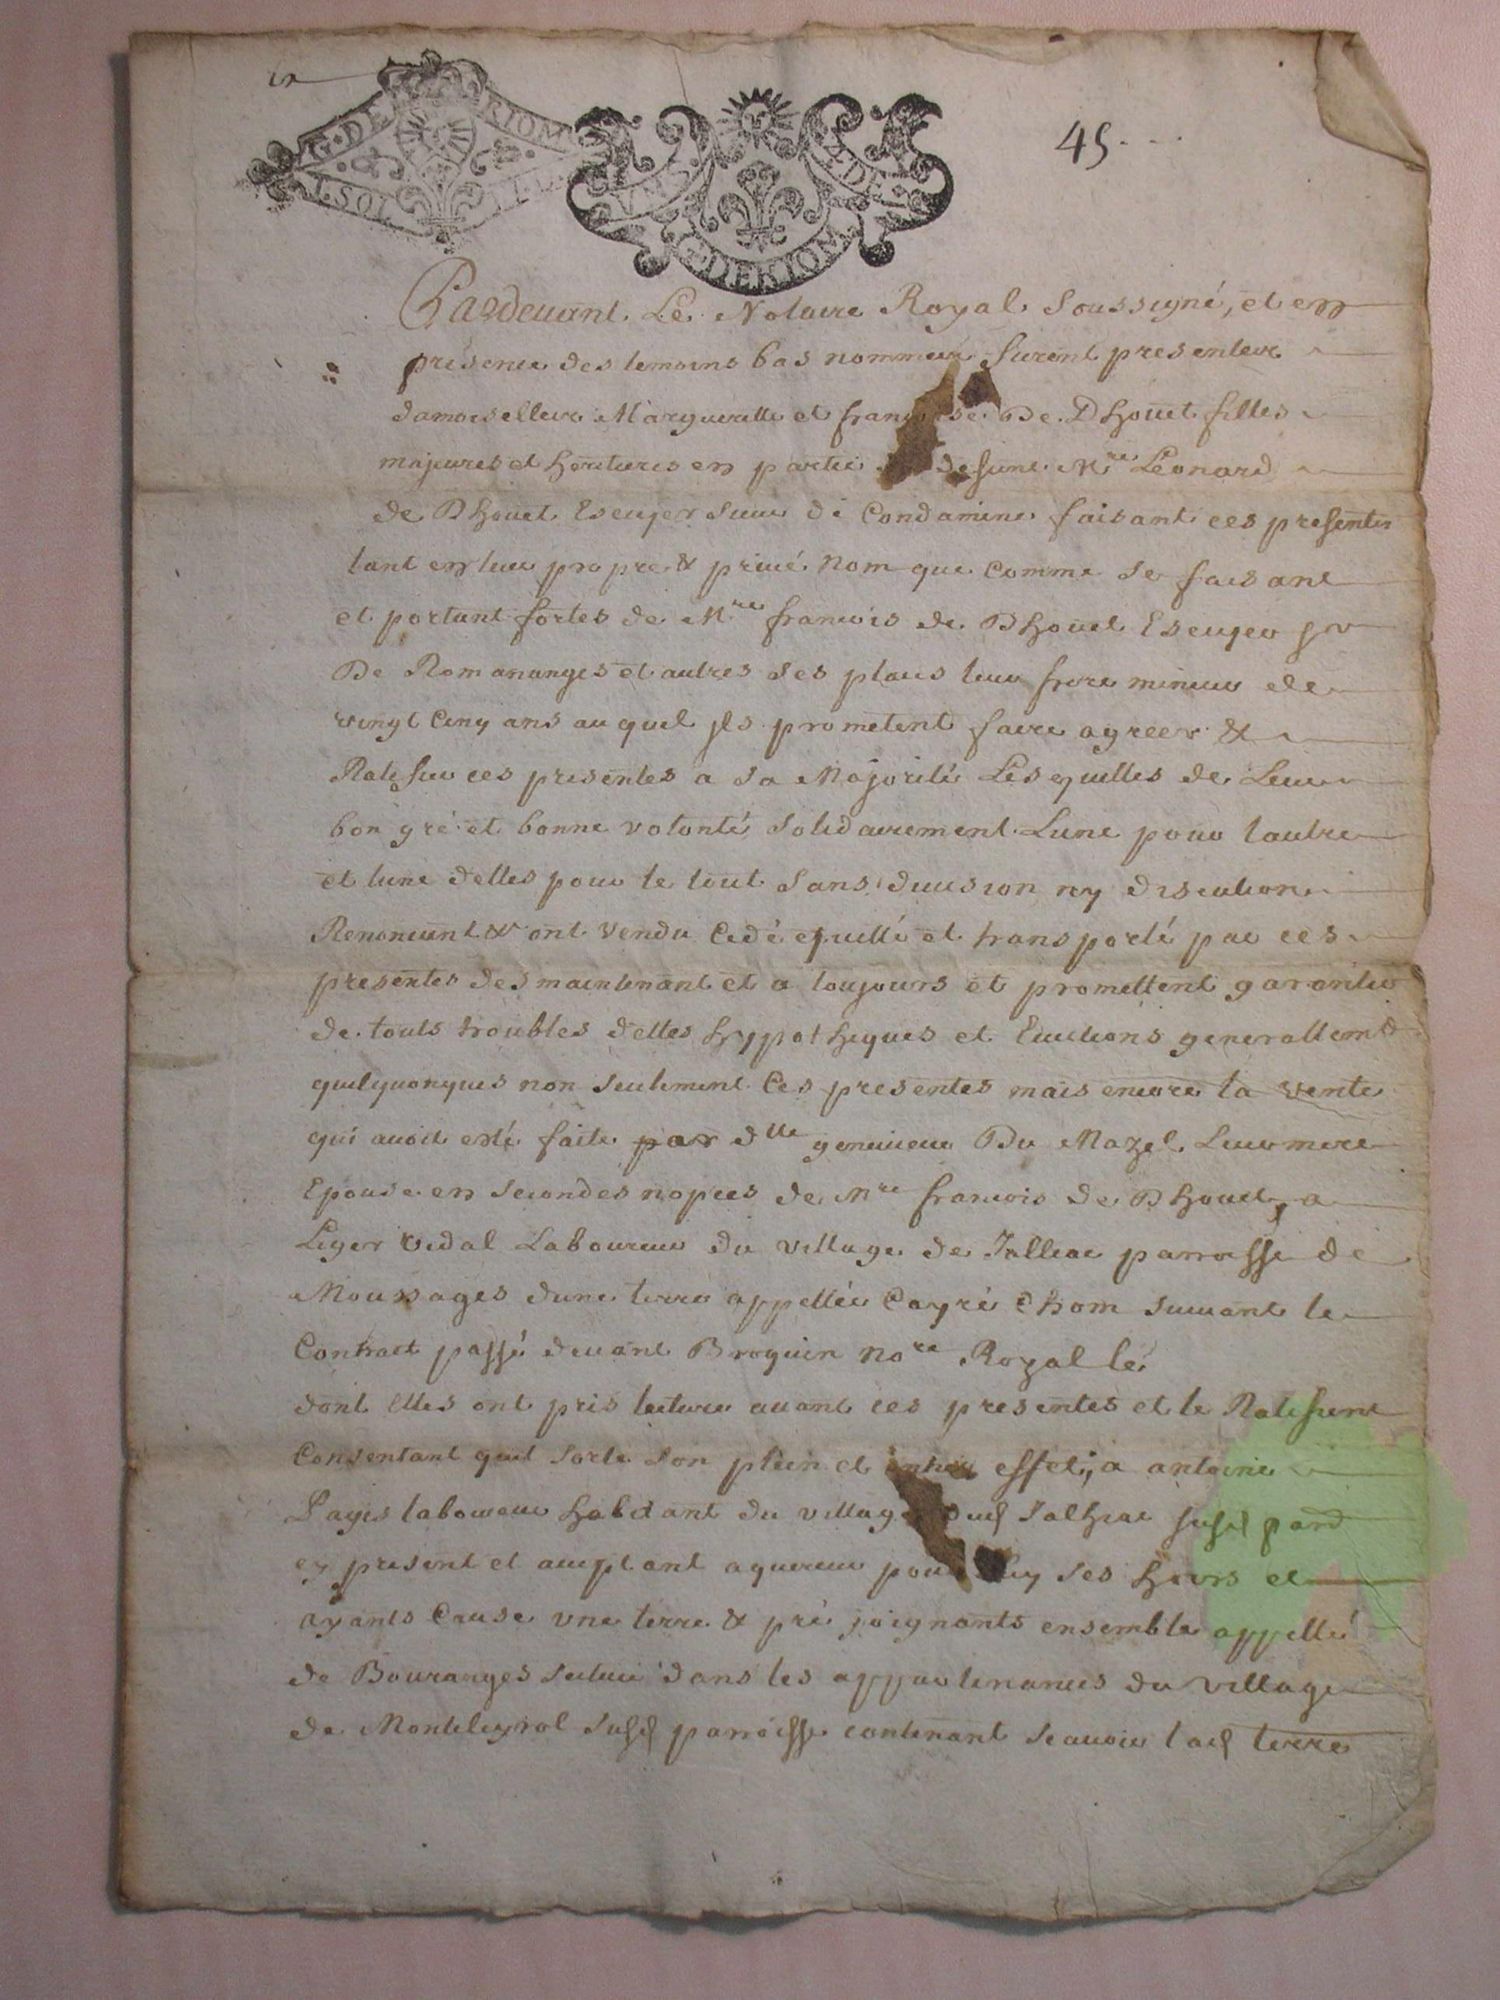 G. DE RIOM
45
G. DE RIOM
Pardevant Le Notaire Royal soussigné, et en
présence des temoins bas nommeés furent presenteés
damoiselleus Margueritte et françoise De Dhoüet filles
majeures et heritieres en partie defunt Mre Leonard
de Dhoüet Escuyer sieur de Condamine faisant ces presentes
tant en leur propre & privé nom que comme se faisant
et portant fortes de Mre francois de Dhoüet Escuyer sr
De Romananges et autres ses places leur frere mineur de
vingt cinq ans auquel ils prometent faire agreer &
Ratifier ces presentes a sa Majorité Lesquelles de Leur
bon gré et bonne volonté solidairement Lune pour lautre
et lune delles pour le tout sans division ny discution
Renoncant & ont vendu cedé quitté et transporté par ces
presentes des maintenant et a toujours et promettent garantir
de touts troubles dettes hypotheques et Evictions generallemt
quelquonques non seulement ces presentes mais encore la vente
qui avoit esté faite par dlle genevieve Du Mazel Leur mere
Epouse en secondes nopces de Mre francois de Dhouet, a
Leger vidal Laboureur du village de Jalliac parroisse de
Moussages dune terre appellée Cayré Chom suivant le
Contract passé devant Broquin nore Royal le
dont elles ont pris lecture avant ces presentes et le Ratifient
Consentant quil sorte son plein et entier effet; a antoine
Pagis laboureur habitant du village dud Jalhiac susd parr
cy present et acceptant aquereur pour luy ses hoirs et
ayants Cause une terre & pré joignants ensemble appellé
de Bouranges scitué dans les appartenances du village
de Monteleyrol susd parroisse contenant scavoir lad terre